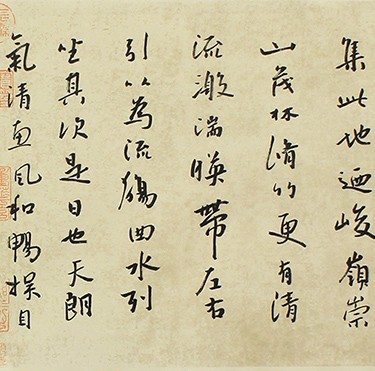 集此地迺峻嶺崇
山茂林脩竹更有清
流激湍暎帶左右
引以為流觴曲水列
坐其次是日也天朗
氣清惠風和暢目